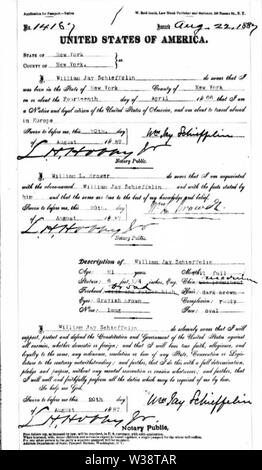 Application for Passport—Native
No. 14187 Issued Aug. 22. 1887
UNITED STATES OF AMERICA.
STATE OF New York
COUNTY OF New York
I, William Jay Schieffelin do swear that I
was born in the State of New York County of New York
on or about the Fourteenth day of April 1866 that I am
a Native and loyal citizen of the United States of America, and am about to travel abroad
in Europe
Sworn to before me, this 20th day Wm Jay Schieffelin
of August 1887
Notary Public.
I, William L. Brower do swear that I am acquainted
with the above-named William Jay Schieffelin and with the facts stated by
him are true to the best of my knowledge and belief.
Sworn to before me, this 20th day
of August 1887
Notary Public.
Description of William Jay Schieffelin
Age: 21 years Mouth: full
Stature: feet, inches, Eng. Chin:
Forehead: Hair: dark brown
Eyes: Grayish Brown Complexion: ruddy
Nose: long Face: oval
I, William Jay Schieffelin do solemnly swear that I will
support, protect and defend the Constitution and Government of the United States against
all enemies, whether domestic or foreign; and that I will bear true faith, allegiance, and
loyalty to the same, any ordinance, resolution or law of any State, Convention or Legis-
lature to the contrary notwithstanding; and further, that I do this with a full determination,
pledge and purpose, without any mental reservation or evasion whatsoever; and further, that
I will well and faithfully perform all the duties which may be required of me by law.
So help me God.
Sworn to before me, this 20 day
of August 1887 Wm Jay Schieffelin
Notary Public.
alamy
Image ID: W38TAR
www.alamy.com